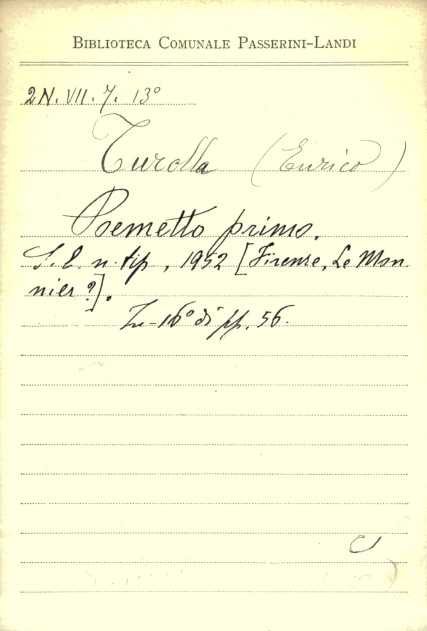 BIBLIOTECA COMUNALE PASSERINI-LANDI
2N. VII. 7. 13°
Turolla (Enrico)
Poemetto primo.
S. E. n. tip, 1952 [Firenze, Le Mon
nier?].
In-16° di pp. 56.